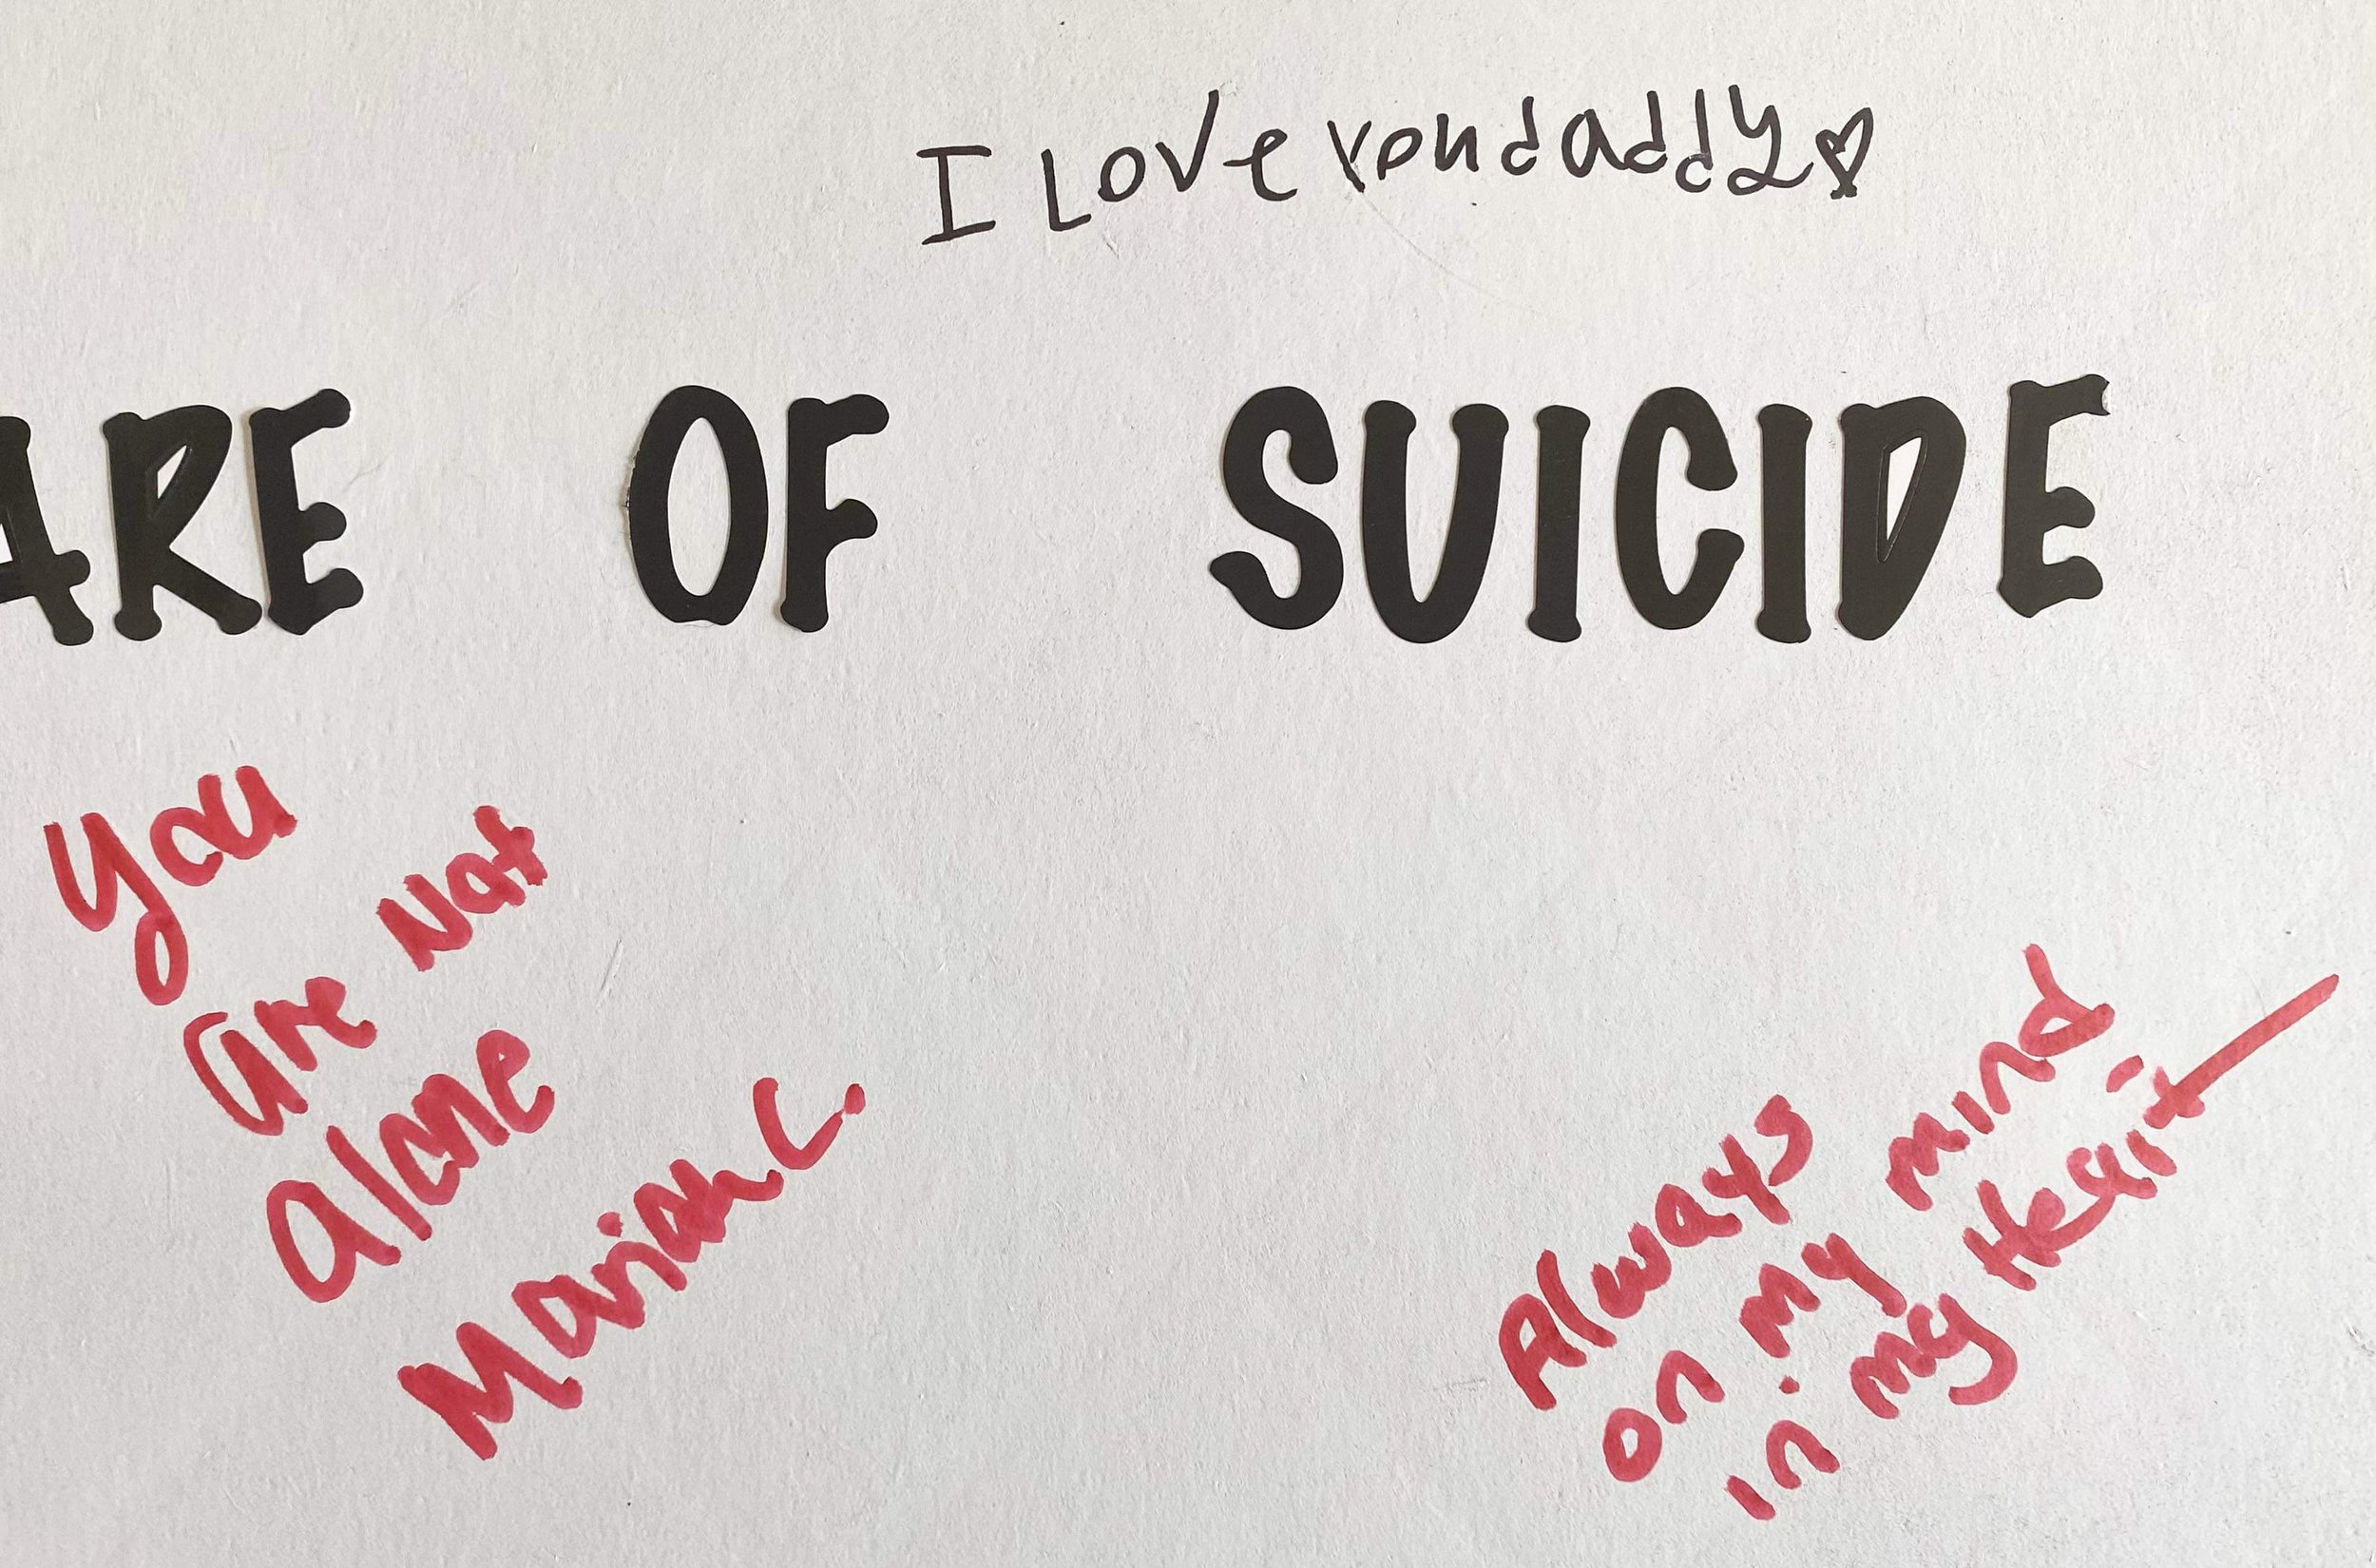 I Love you daddy
ARE OF SUICIDE
You
are Not
alone
Mariah C.
Always
on my mind
in my Heart